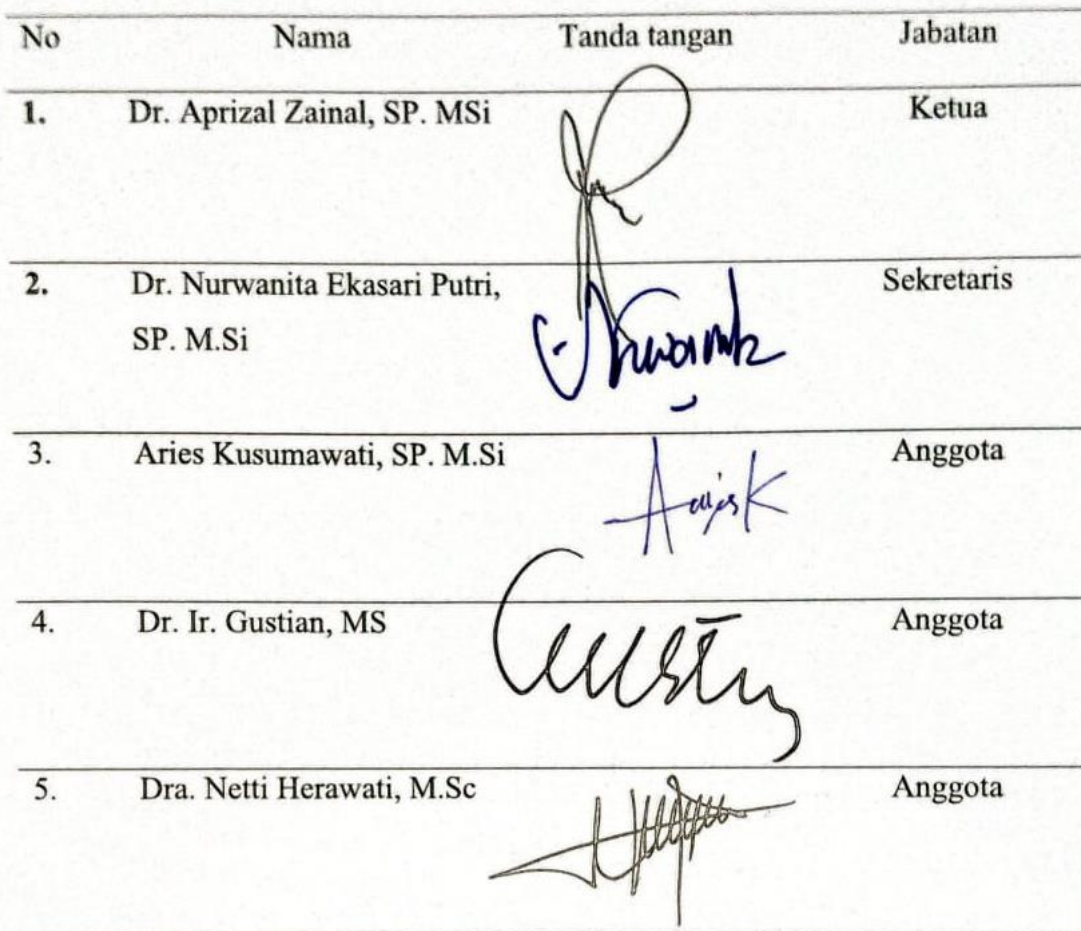 No Nama Tanda tangan Jabatan
1. Dr. Aprizal Zainal, SP. MSi Ketua
2. Dr. Nurwanita Ekasari Putri, Sekretaris
SP. M.Si
3. Aries Kusumawati, SP. M.Si Anggota
Aries K
4. Dr. Ir. Gustian, MS Anggota
5. Dra. Netti Herawati, M.Sc Anggota